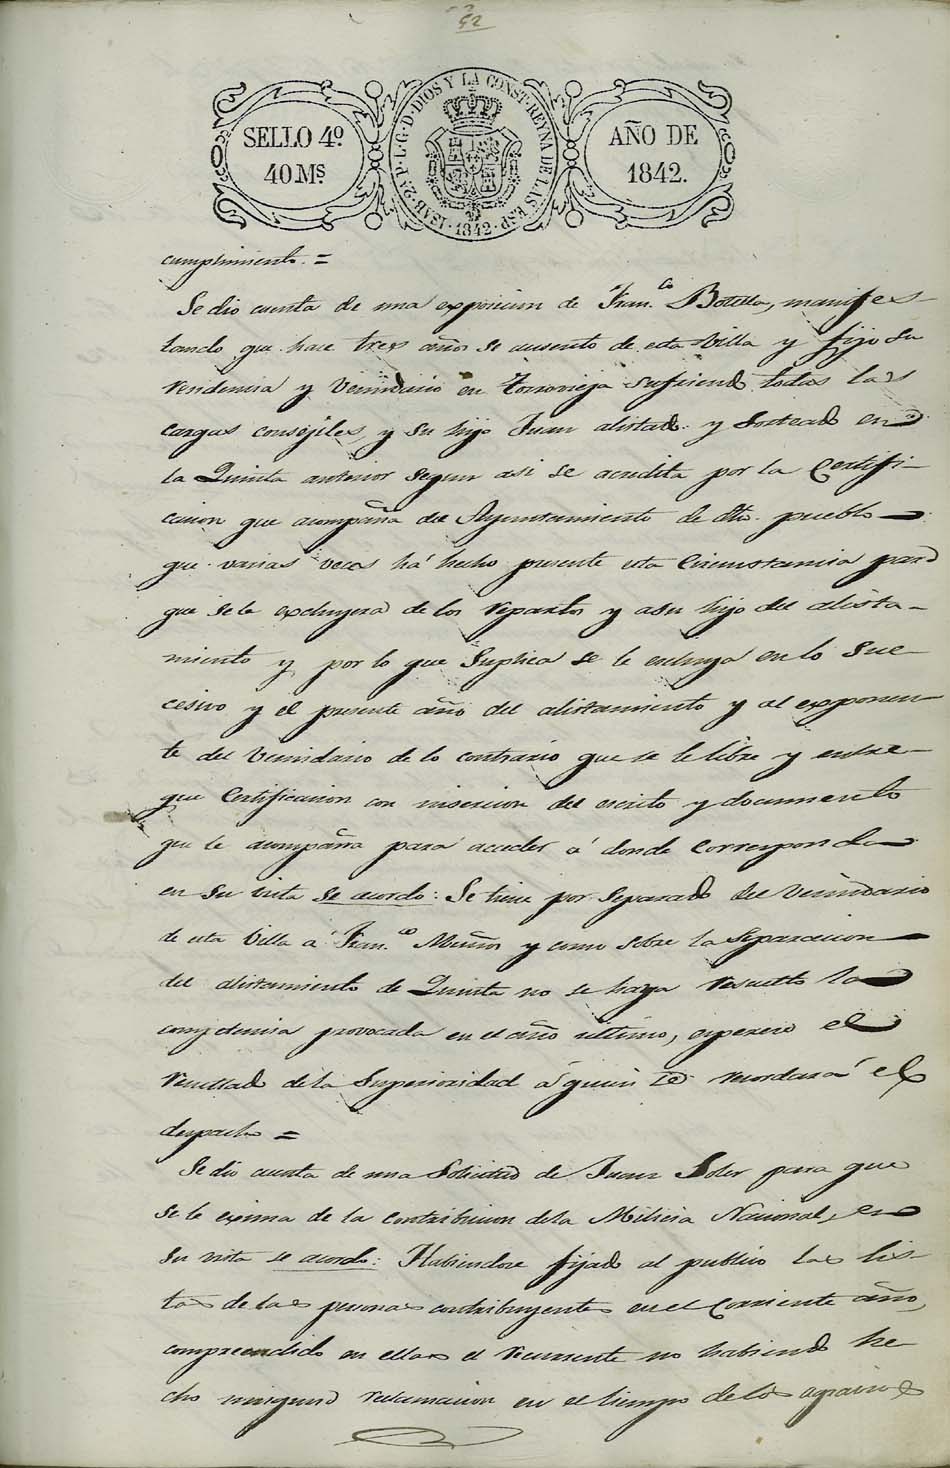 52
SELLO 4º. 40 Mˢ.
ISAB. 2ª. P. L. G. D. DIOS Y LA CONST. REYNA DE LAS ESP. 1842.
AÑO DE 1842.
cumplimiento. =
Se dio cuenta de una exposicion de Fran.co Botella, manifes-
tando que hace tres años se ausento de esta Villa y fijo su
rendencia y Vecindario en Torrevieja sufriendo todas las
cargas consejiles, y su hijo Juan alistado y Sorteado en
la Quinta anterior segun asi se acredita por la Certifi-
cacion que acompaña del Ayuntamiento de dho. pueblo
que varias veces há hecho presente esta Circunstancia para
que se le excluyera de los repartos y a su hijo del alista-
miento y por lo que Suplica se le excluya en lo suc-
cesivo y el presente año del alistamiento y al exponen-
te del Vecindario de lo contrario que se le libre y entre-
gue Certificacion con insercion del escrito y documento
que le acompaña para acceder á donde corresponda
en su vista se acordo: Se tiene por Separado del Vecindario
de esta Villa á Fran.co Muñoz y como sobre la Separacion
del alistamiento de Quinta no se haya resuelto la
competencia provocada en el año ultimo, espérese el
resultado de la Superioridad á quien se recordará el
despacho =
Se dio cuenta de una Solicitud de Juan Soler para que
se le exima de la contribucion de la Milicia Nacional, en
su vista se acordo: Habiendose fijado al publico las lis-
tas de las personas contribuyentes en el Corriente año,
comprendido en ellas el recurrente no habiendo he-
cho ninguna reclamacion en el tiempo de los agravios